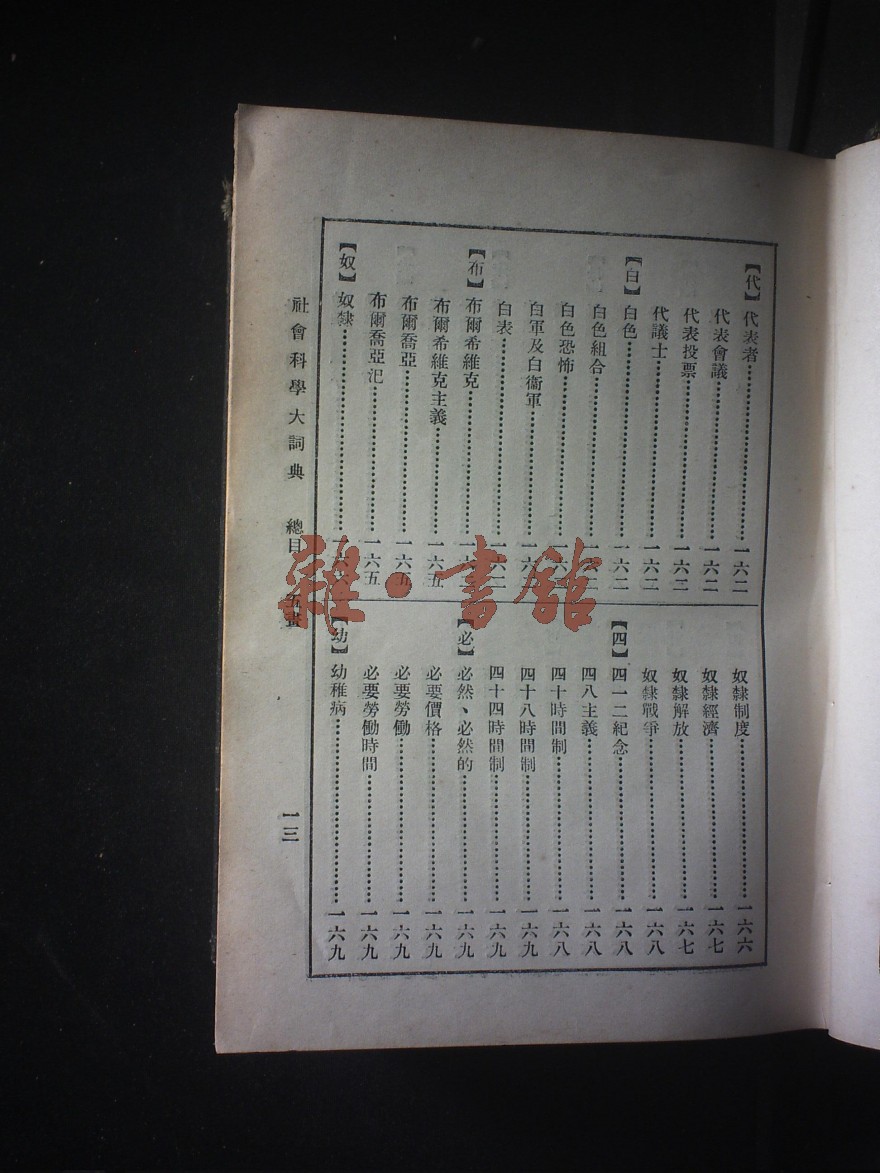 【代】代表者……一六二
代表會議……一六二
代表投票……一六二
代議士……一六二
【白】白色……一六二
白色組合……
白色恐怖……
白軍及白衞軍……
白表……
【布】布爾希維克……
布爾希維克主義……一六五
布爾喬亞……一六五
布爾喬亞氾……一六五
【奴】奴隸……
奴隸制度……一六六
奴隸經濟……一六七
奴隸解放……一六七
奴隸戰爭……一六八
【四】四一二紀念……一六八
四八主義……一六八
四十時間制……一六八
四十八時間制……一六九
四十四時間制……一六九
【必】必然、必然的……一六九
必要價格……一六九
必要勞働……一六九
必要勞働時間……一六九
【幼】幼稚病……一六九
社會科學大詞典 總目 五畫 一三
雜·書館